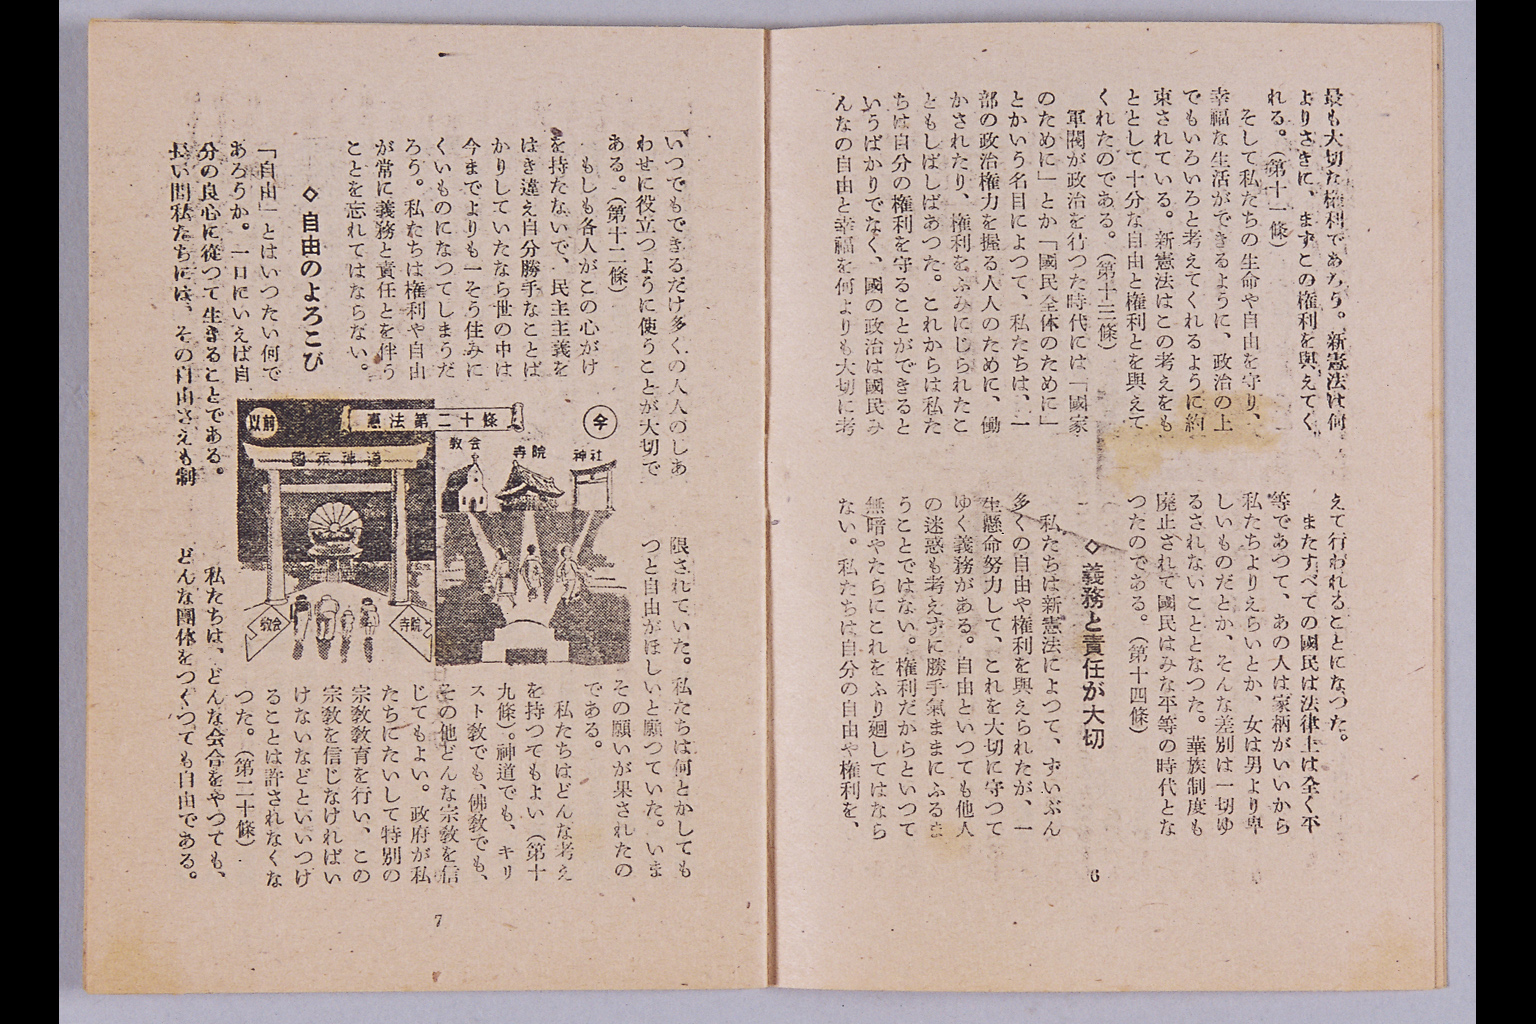 最も大切な権利であろう。新憲法は何
よりさきに、まずこの権利を與えてく
れる。（第十一條）
そして私たちの生命や自由を守り、
幸福な生活ができるように、政治の上
でもいろいろと考えてくれるように約
束されている。新憲法はこの考えをも
ととして十分な自由と権利とを與えて
くれたのである。（第十三條）
軍閥が政治を行つた時代には「國家
のために」とか「國民全体のために」
とかいう名目によつて、私たちは、一
部の政治権力を握る人人のために、働
かされたり、権利をふみにじられたこ
ともしばしばあつた。これからは私た
ちは自分の権利を守ることができると
いうばかりでなく、國の政治は國民み
んなの自由と幸福を何よりも大切に考
えて行われることになつた。
またすべての國民は法律上は全く平
等であつて、あの人は家柄がいいから
私たちよりえらいとか、女は男より卑
しいものだとか、そんな差別は一切ゆ
るされないこととなつた。華族制度も
廃止されて國民はみな平等の時代とな
つたのである。（第十四條）
◇義務と責任が大切
私たちは新憲法によつて、ずいぶん
多くの自由や権利を與えられたが、一
生懸命努力して、これを大切に守つて
ゆく義務がある。自由といつても他人
の迷惑も考えずに勝手氣ままにふるま
うことではない。権利だからといつて
無暗やたらにこれをふり廻してはなら
ない。私たちは自分の自由や権利を、
6
いつでもできるだけ多くの人人のしあ
わせに役立つように使うことが大切で
ある。（第十二條）
もしも各人がこの心がけ
を持たないで、民主主義を
はき違え自分勝手なことば
かりしていたなら世の中は
今までよりも一そう住みに
くいものになつてしまうだ
ろう。私たちは権利や自由
が常に義務と責任とを伴う
ことを忘れてはならない。
◇自由のよろこび
「自由」とはいつたい何で
あろうか。一口にいえば自
分の良心に從つて生きることである。
長い間私たちには、その自由さえも制
限されていた。私たちは何とかしても
つと自由がほしいと願つていた。いま
その願いが果されたの
である。
私たちはどんな考え
を持つてもよい（第十
九條）。神道でも、キリ
スト教でも、佛教でも、
その他どんな宗教を信
じてもよい。政府が私
たちにたいして特別の
宗教教育を行い、この
宗教を信じなければい
けないなどといいつけ
ることは許されなくな
つた。（第二十條）
私たちは、どんな会合をやつても、
どんな團体をつくつても自由である。
憲法第二十條
今
神社
寺院
教会
以前
國家神道
寺院
教会
7